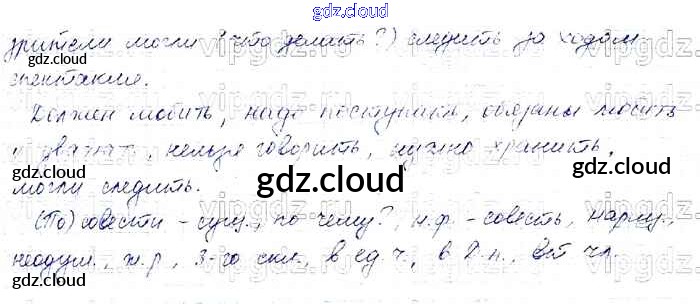 gdz.cloud
зрители могли (что делать?) следить за ходом
gdz.cloud
спектакля.
Должен любить, надо поступать, обязаны любить
и уважать, нельзя говорить, нужно хранить,
могли следить.
gdz.cloud
gdz.cloud
gdz.cloud
(По) совести – сущ., по чему?, н.ф. – совесть, нариц.,
неодуш., ж.р., 3-го скл., в ед.ч., в Д.п., вт. чл.
gdz.cloud
gdz.cloud